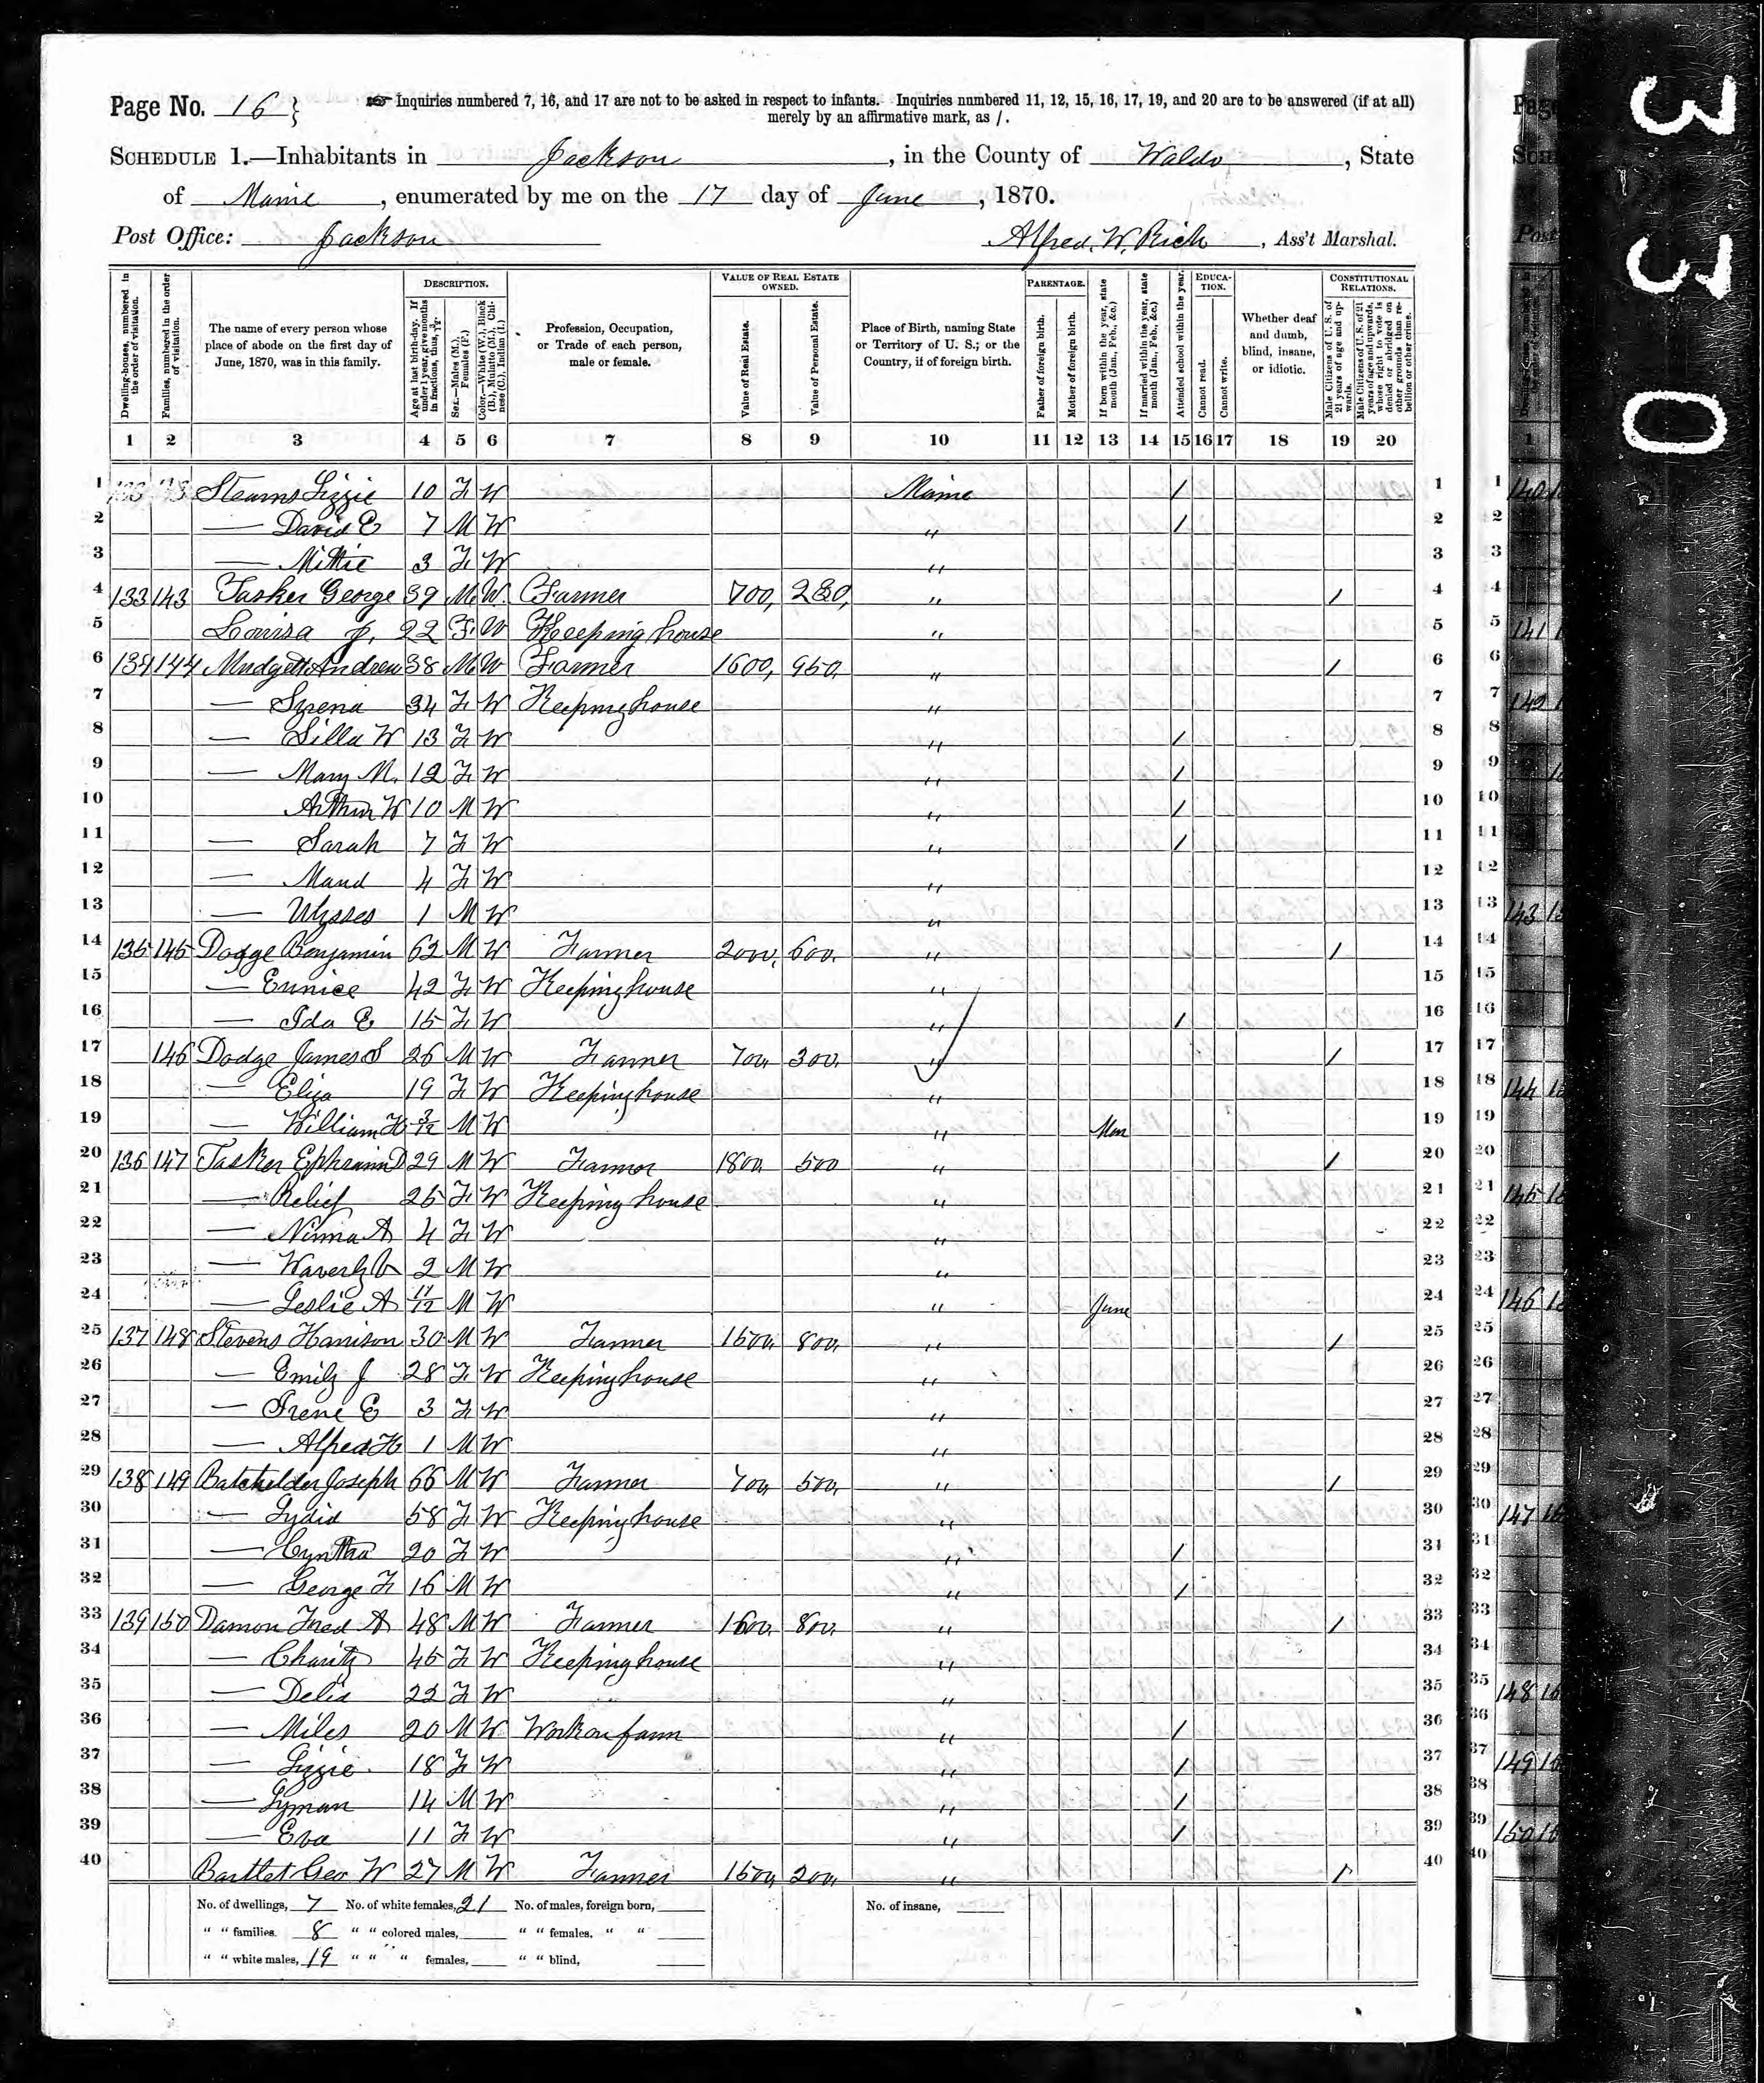 Page No. 16 }
☞ Inquiries numbered 7, 16, and 17 are not to be asked in respect to infants. Inquiries numbered 11, 12, 15, 16, 17, 19, and 20 are to be answered (if at all)
merely by an affirmative mark, as /.
SCHEDULE 1.—Inhabitants in Jackson, in the County of Waldo, State
of Maine, enumerated by me on the 17 day of June, 1870.
Post Office: Jackson Alfred W. Rich, Ass't Marshal.
Dwelling-houses, numbered in the order of visitation.
Families, numbered in the order of visitation.
The name of every person whose place of abode on the first day of June, 1870, was in this family.
DESCRIPTION.
Age at last birth-day. If under 1 year, give months in fractions, thus, 3/12.
Sex.—Males (M.), Females (F.)
Color.—White (W.), Black (B.), Mulatto (M.), Chinese (C.), Indian (I.)
Profession, Occupation, or Trade of each person, male or female.
VALUE OF REAL ESTATE OWNED.
Value of Real Estate.
Value of Personal Estate.
Place of Birth, naming State or Territory of U. S.; or the Country, if of foreign birth.
PARENTAGE.
Father of foreign birth.
Mother of foreign birth.
If born within the year, state month (Jan., Feb., &c.)
If married within the year, state month (Jan., Feb., &c.)
Attended school within the year.
EDUCATION.
Cannot read.
Cannot write.
Whether deaf and dumb, blind, insane, or idiotic.
CONSTITUTIONAL RELATIONS.
Male Citizens of U. S. of 21 years of age and upwards.
Male Citizens of U. S. of 21 years of age and upwards, whose right to vote is denied or abridged on other grounds than rebellion or other crime.
1 2 3 4 5 6 7 8 9 10 11 12 13 14 15 16 17 18 19 20
1 Stearns Lizzie 10 F W Maine / 1
2 — David E 7 M W " / 2
3 — Mittie 3 F W " 3
4 133 143 Tasker George 39 M W. Farmer 700, 280, " / 4
5 Louisa J. 22 F. W Keeping house " 5
6 134 144 Mudgett Andrew 38 M W Farmer 1600, 950, " / 6
7 — Syrena 34 F W Keeping house " 7
8 — Lilla W 13 F W " / 8
9 — Mary M. 12 F W " / 9
10 Arthur W 10 M W " / 10
11 — Sarah 7 F W " / 11
12 — Maud 4 F W " 12
13 — Ulysses 1 M W " 13
14 135 145 Dodge Benjamin 62 M W Farmer 2000, 600, " / 14
15 — Eunice 42 F W Keeping house " 15
16 — Ida E 15 F W " / 16
17 146 Dodge James S 26 M W Farmer 700, 300, " / 17
18 — Eliza 19 F W Keeping house " 18
19 — William H 3/12 M W " Mar 19
20 136 147 Tasker Ephraim D 29 M W Farmer 1800 500 " / 20
21 — Relief 25 F W Keeping house " 21
22 — Ninna A 4 F W " 22
23 — Waverly 2 M W " 23
24 — Leslie A 11/12 M W " June 24
25 137 148 Stevens Harrison 30 M W Farmer 1500, 800, " / 25
26 — Emily J 28 F W Keeping house " 26
27 — Irene E 3 F W " 27
28 — Alfred H 1 M W " 28
29 138 149 Batchelder Joseph 66 M W Farmer 700, 500, " / 29
30 — Lydia 58 F W Keeping house " 30
31 — Cyntha 20 F W " / 31
32 — George F 16 M W " / 32
33 139 150 Damon Fred A 48 M W Farmer 1600, 800, " / 33
34 — Charity 45 F W Keeping house " 34
35 — Delia 22 F W " 35
36 — Miles 20 M W Work on farm " / 36
37 — Lizzie 18 F W " / 37
38 — Lyman 14 M W " / 38
39 — Eva 11 F W " / 39
40 Bartlet Geo W 27 M W Farmer 1500, 200, " / 40
No. of dwellings, 7 No. of white females, 21 No. of males, foreign born, No. of insane,
" " families. 8 " " colored males, " " females, " "
" " white males, 19 " " " females, " " blind,
330